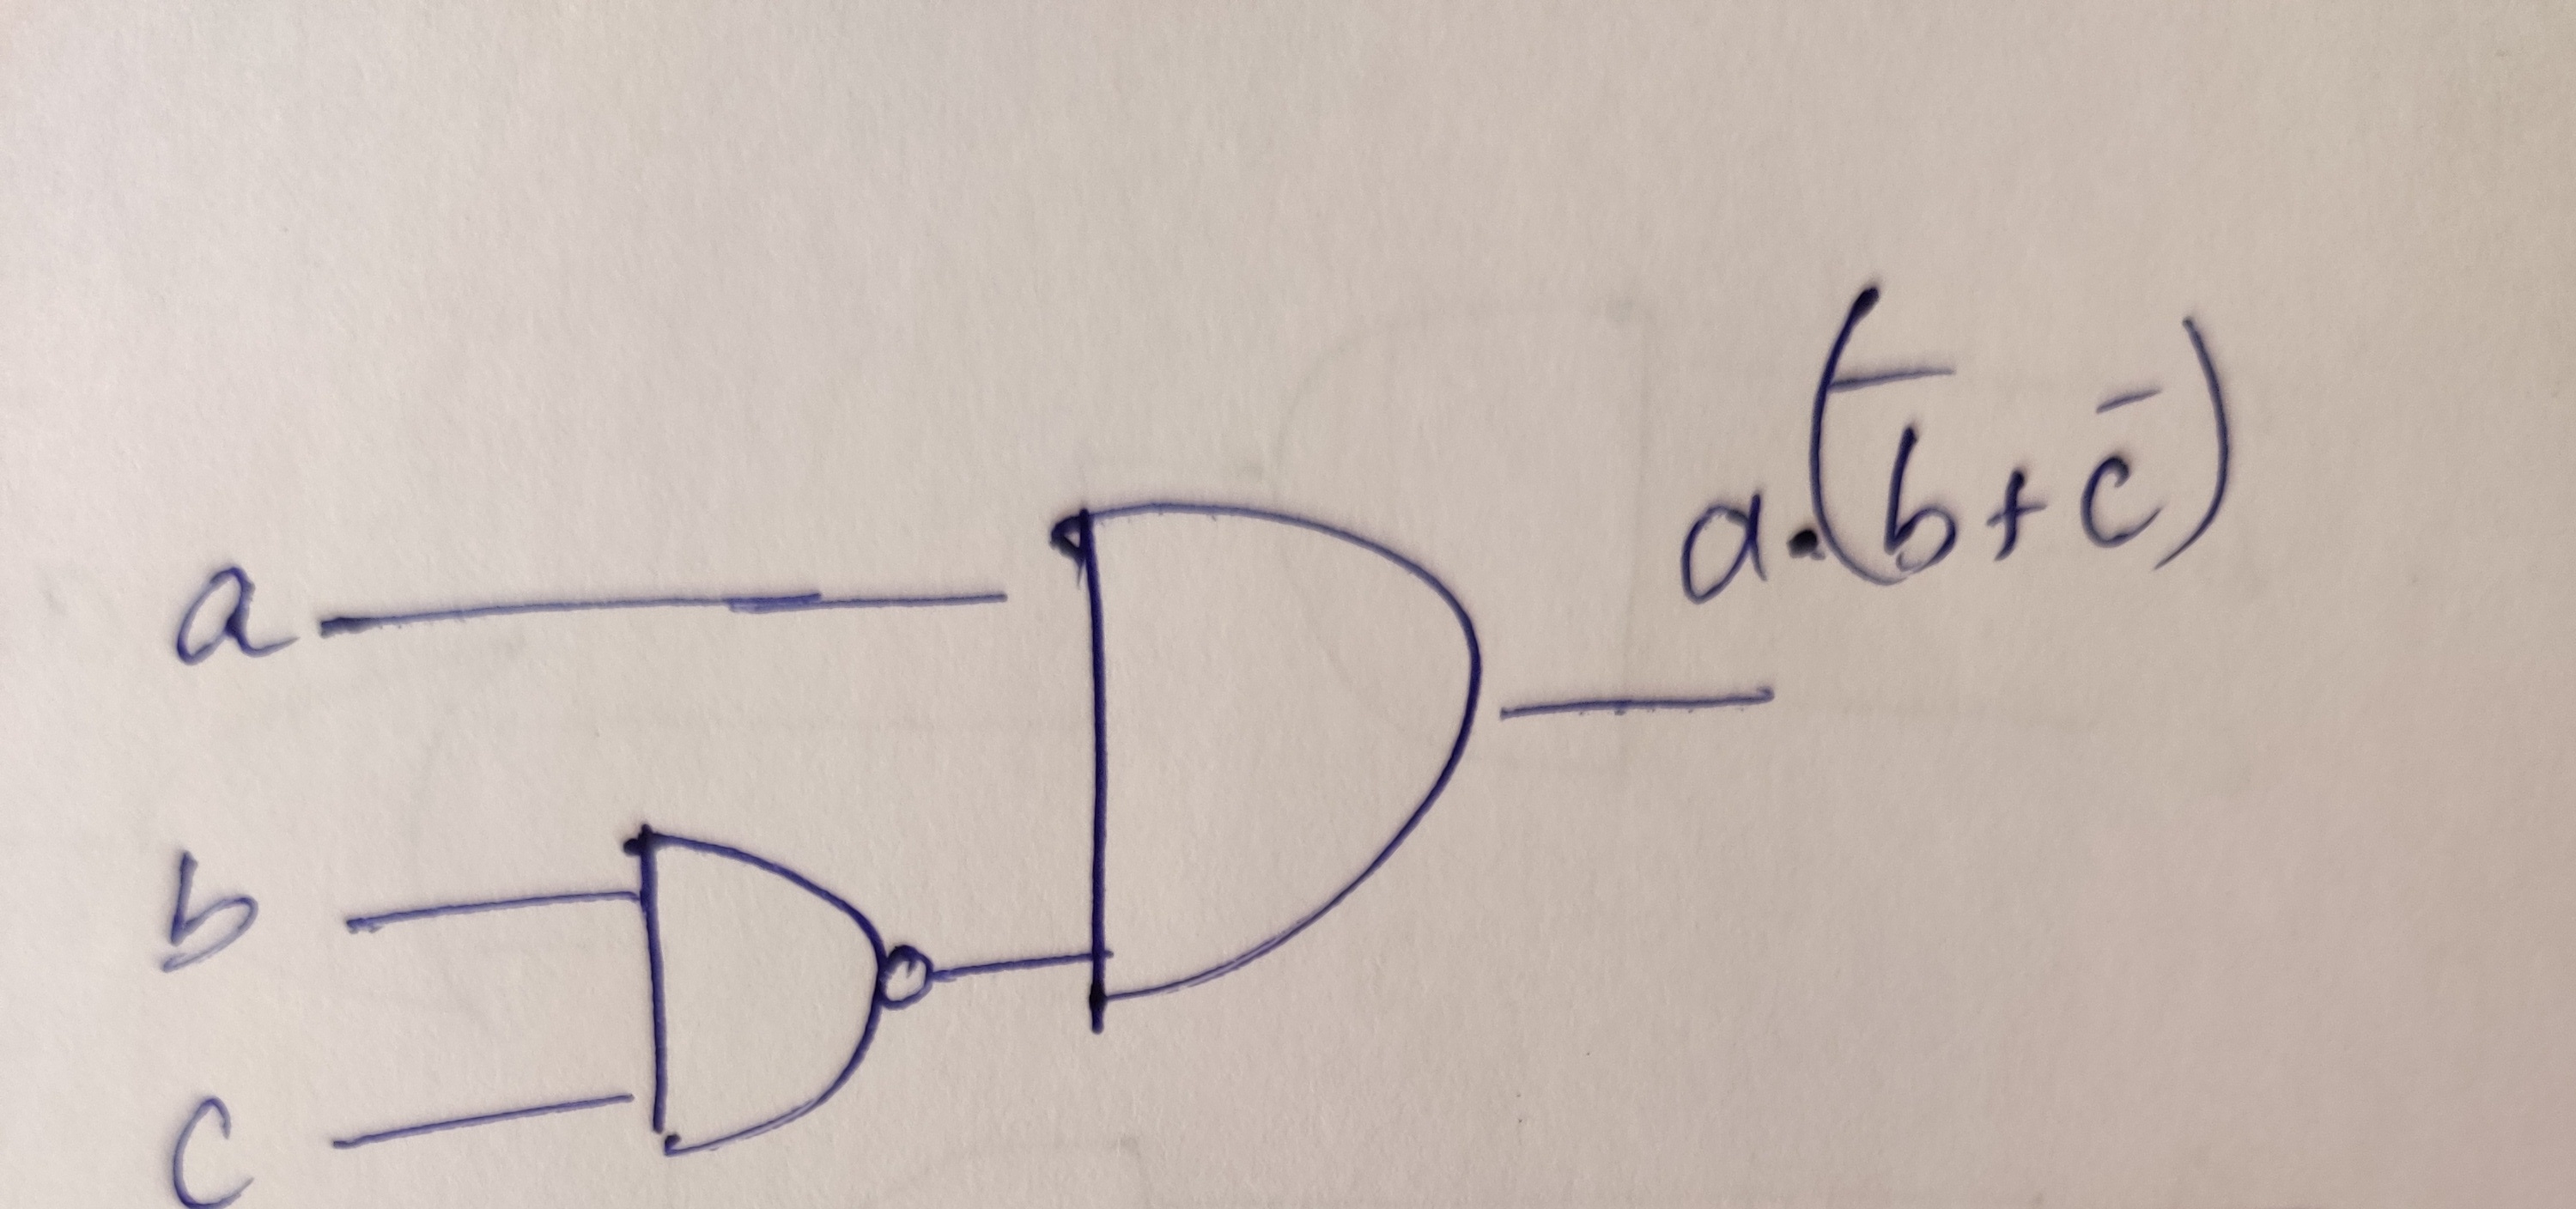 a.(b̅+c̅)
a
b
c